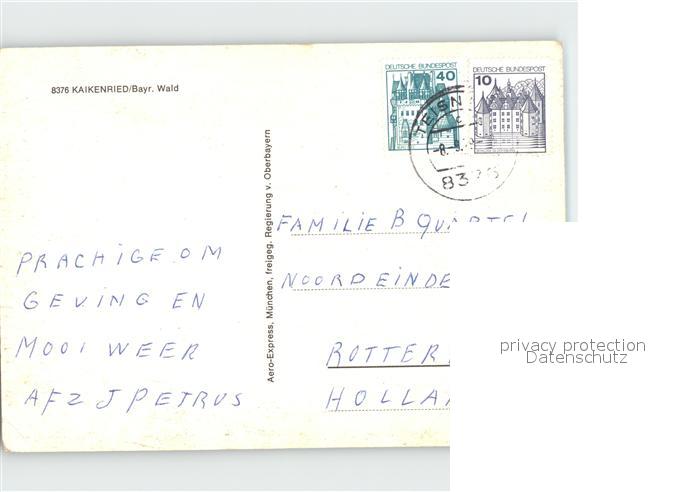 8376 KAIKENRIED/Bayr. Wald
DEUTSCHE BUNDESPOST
40
DEUTSCHE BUNDESPOST
10
TEISN
83
Aero-Express, München, freigeg. Regierung v. Oberbayern
PRACHIGE OM
GEVING EN
MOOI WEER
AFZ J PETRUS
FAMILIE B
NOORDEINDE
ROTTER
HOLLA
privacy protection
Datenschutz